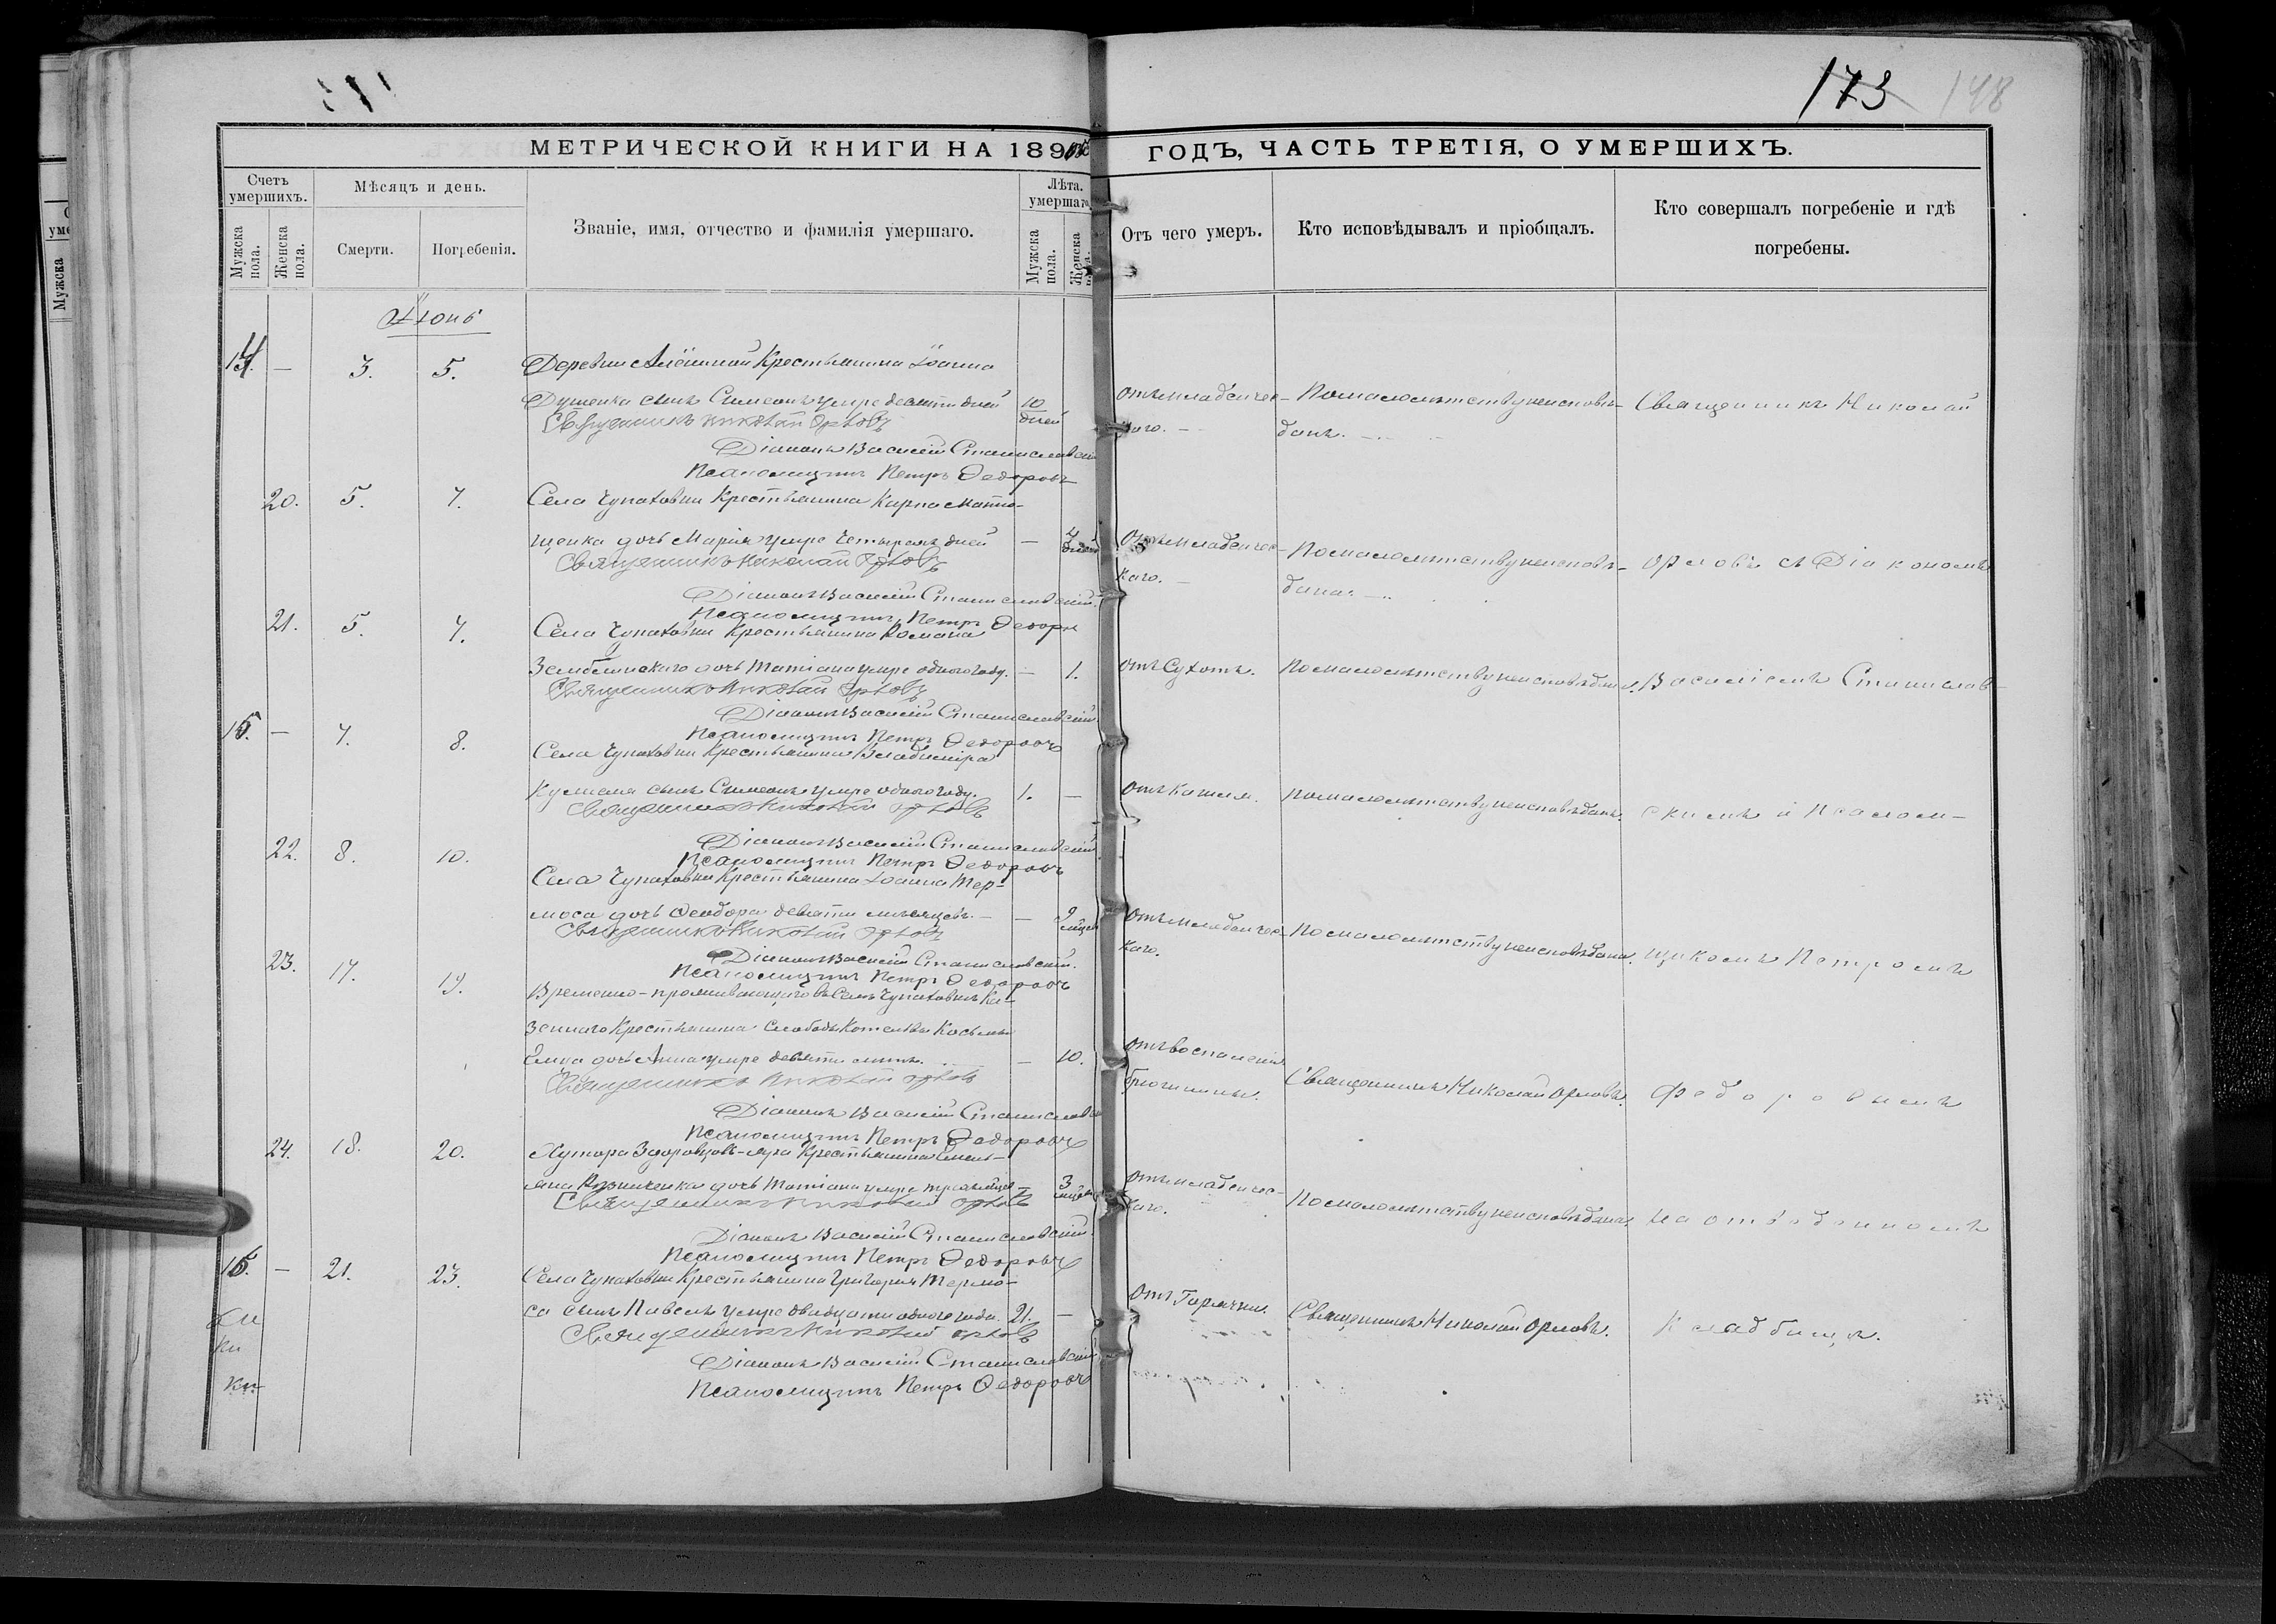 173 148
МЕТРИЧЕСКОЙ КНИГИ НА 189
ГОДЪ, ЧАСТЬ ТРЕТІЯ, О УМЕРШИХЪ.
Счетъ умершихъ.
Мужска пола.
Женска пола.
Мѣсяцъ и день.
Смерти.
Погребенія.
Званіе, имя, отчество и фамилія умершаго.
Лѣта. умершаго
Мужска пола.
Женска пола.
Отъ чего умеръ.
Кто исповѣдывалъ и пріобщалъ.
Кто совершалъ погребеніе и гдѣ
погребены.
Іюнь
14. — 3. 5. Деревни Крестьянина Іоанна
Душенка сынъ Симеонъ умре десяти дней 10 дней
Священникъ Николай Орловъ
Діаконъ Василій Станиславскій
Псаломщикъ Петръ Ѳедоровъ
отъ младенчес-
каго. —
По малолѣтству неисповѣ-
данъ.
Священникъ Николай
20. 5. 7. Села Чупаховки Крестьянина Карпа
щенка дочь Марія умре четырехъ дней — 4 дней
Священникъ Николай Орловъ
Діаконъ Василій Станиславскій.
Псаломщикъ Петръ Ѳедоровъ
Отъ младенчес-
каго. —
По малолѣтству неисповѣ-
дана.
Орловъ съ Діакономъ
21. 5. 7. Села Чупаховки Крестьянина Романа
дочь Татіана умре одного году. — 1.
Священникъ Николай Орловъ
Діаконъ Василій Станиславскій.
Псаломщикъ Петръ Ѳедоровъ
отъ Сухотъ.
По малолѣтству неисповѣдана.
Василіемъ Станислав-
15. — 7. 8. Села Чупаховки Крестьянина Владиміра
сынъ Симеонъ умре одного году. 1. —
Священникъ Николай Орловъ
Діаконъ Василій Станиславскій
Псаломщикъ Петръ Ѳедоровъ
отъ Кашля.
По малолѣтству неисповѣданъ.
скимъ и Псалом-
22. 8. 10. Села Чупаховки Крестьянина Іоанна Тер-
моса дочь Ѳеодора девяти мѣсяцевъ. — — 9
Священникъ Николай Орловъ
Діаконъ Василій Станиславскій.
Псаломщикъ Петръ Ѳедоровъ
отъ младенчес-
каго.
По малолѣтству неисповѣдана.
щикомъ Петромъ
23. 17. 19. Временно-проживающаго въ Селѣ Чупаховкѣ Ка-
зеннаго Крестьянина Слободы Котельвы Косьмы
дочь Анна умре девяти лѣтъ. — 10.
Священникъ Николай Орловъ
Діаконъ Василій Станиславскій
Псаломщикъ Петръ Ѳедоровъ
отъ воспаленія
брюшины.
Священникъ Николай Орловъ.
Федоровымъ
24. 18. 20. Хутора Крестьянина Емель-
яна дочь Татіана умре трехъ — 3
Священникъ Николай Орловъ
Діаконъ Василій Станиславскій.
Псаломщикъ Петръ Ѳедоровъ
отъ младенчес-
каго.
По малолѣтству неисповѣдана.
на отведенномъ
16. — 21. 23. Села Чупаховки Крестьянина Григорія Термо-
са сынъ Павелъ умре двадцати одного года. 21. —
Священникъ Николай Орловъ
Діаконъ Василій Станиславскій.
Псаломщикъ Петръ Ѳедоровъ
Отъ Горячки.
Священникъ Николай Орловъ.
Кладбищѣ.